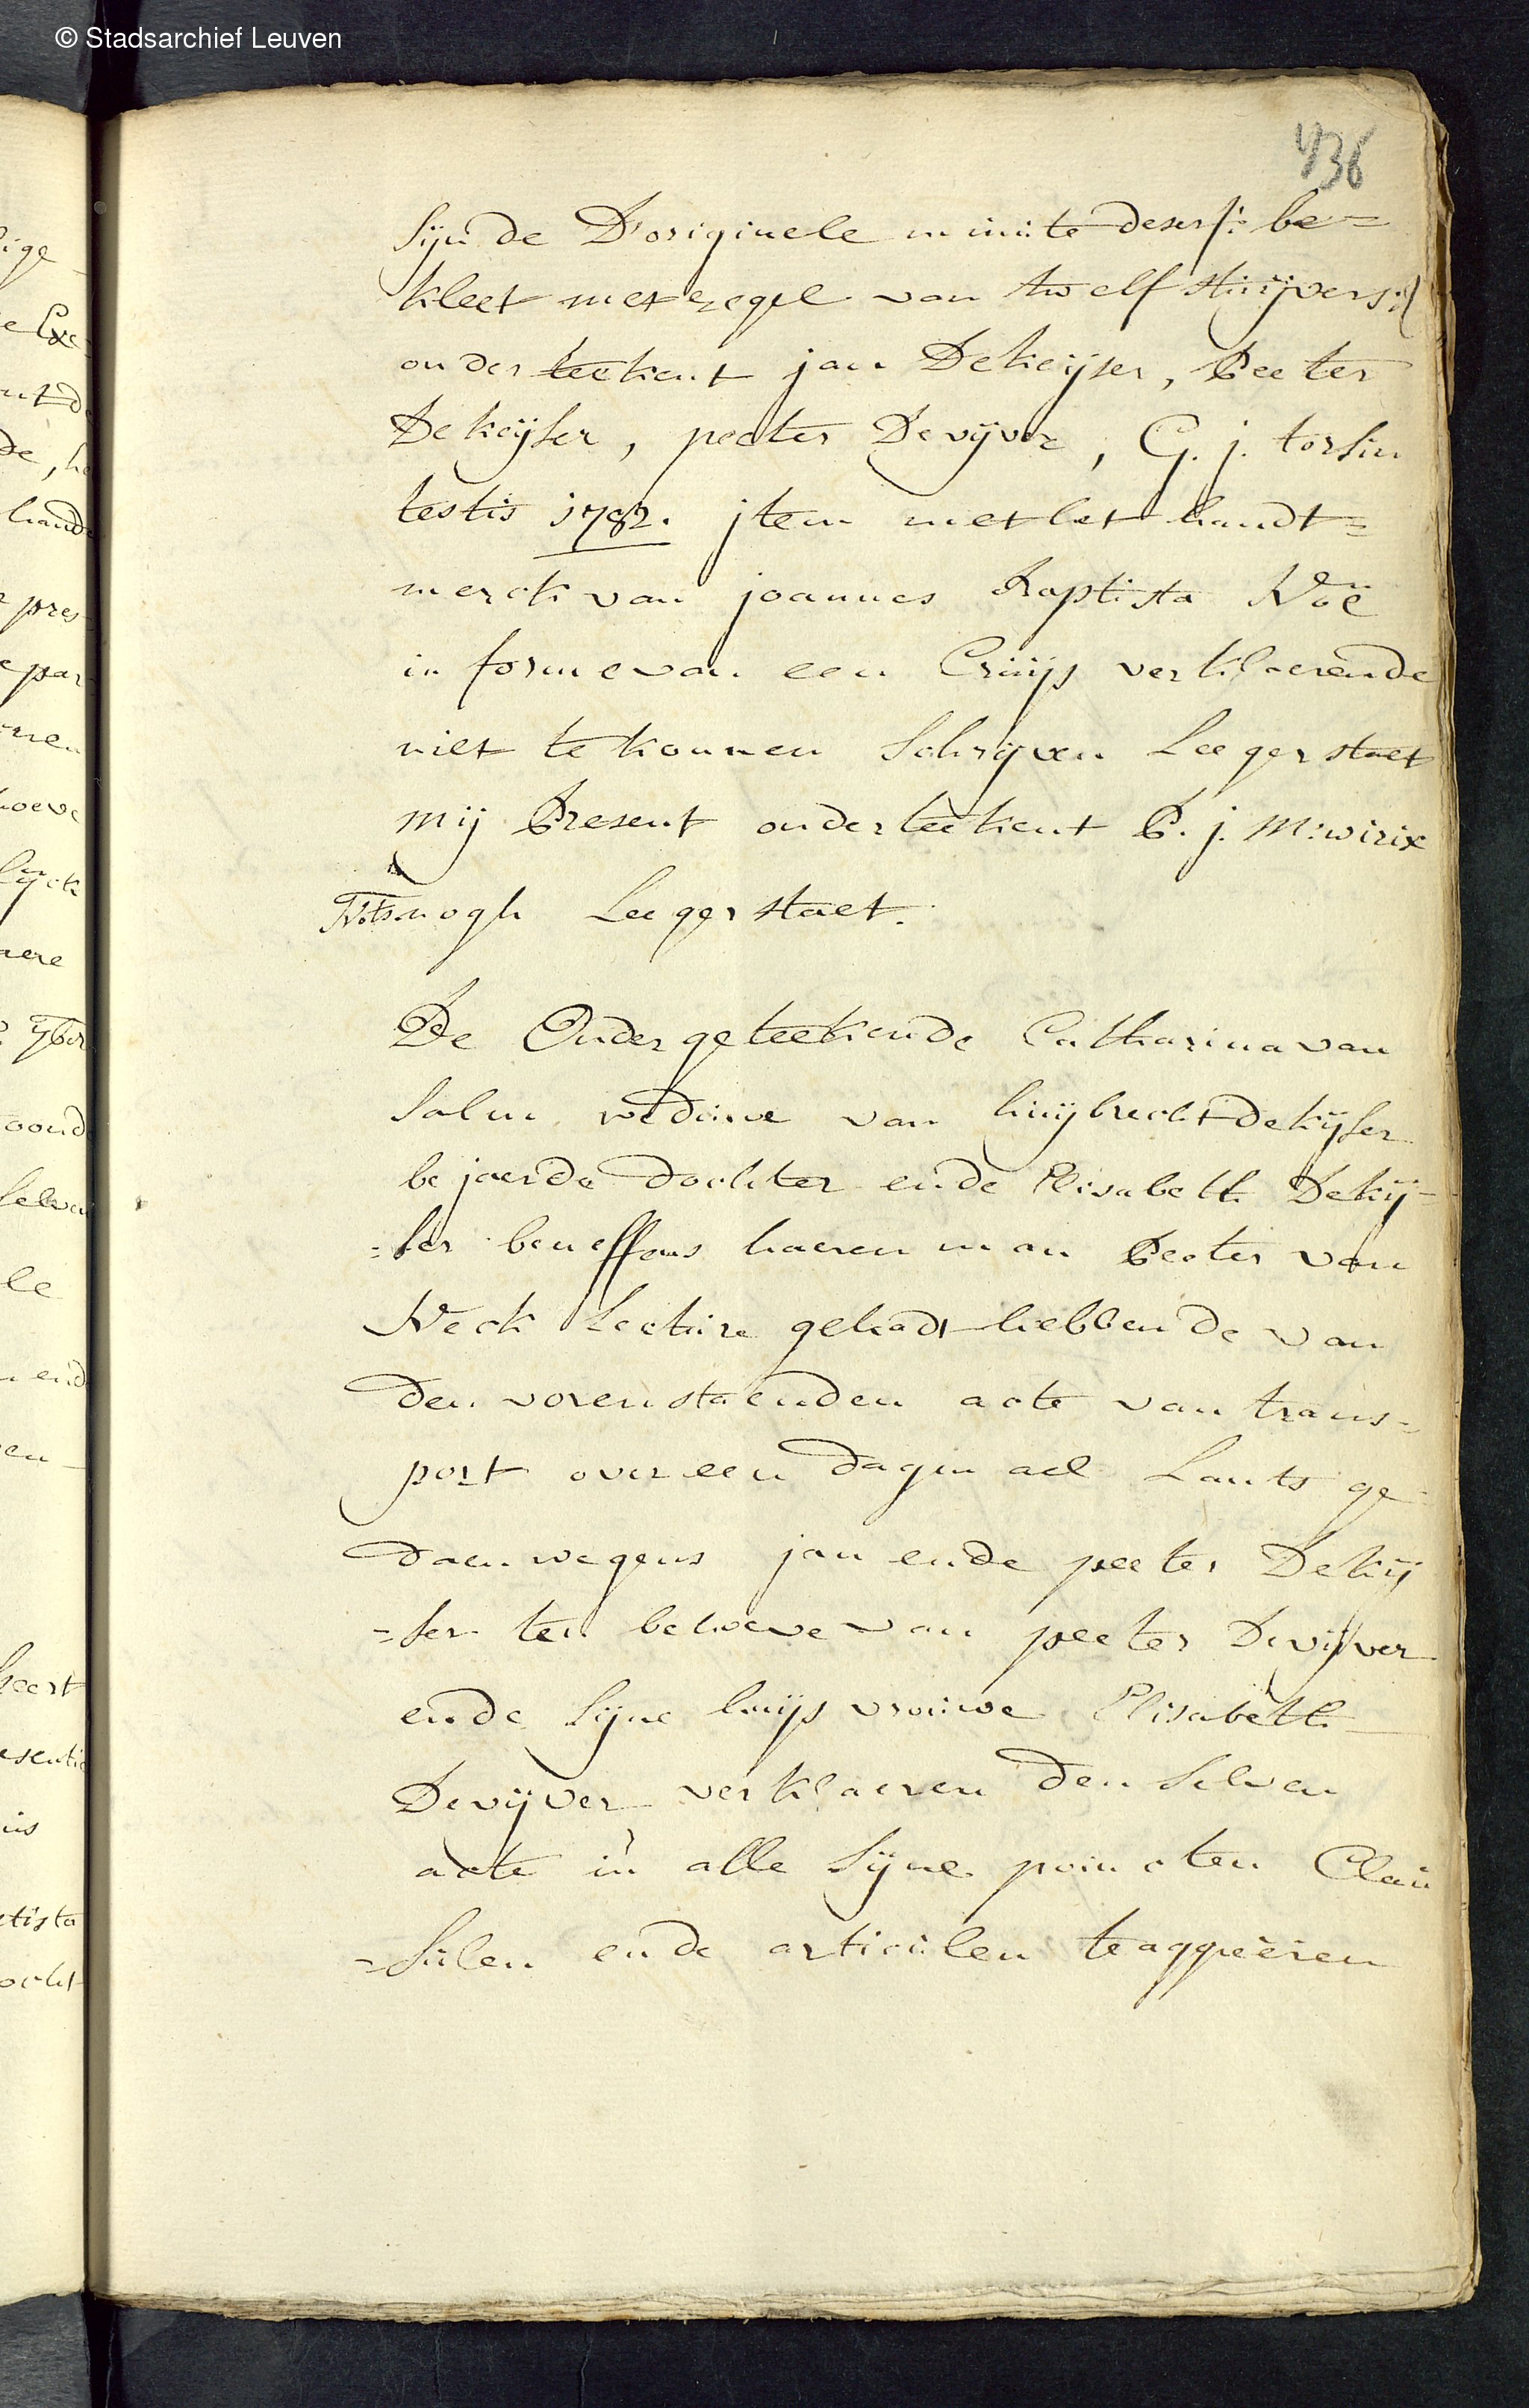 © Stadsarchief Leuven
436
sijnde D'originele minute deser /: be=
kleet met zegel van twelf stuijvers :/
onderteekent jan Dekeijser, Peeter
Dekeijser, peeter Devijver, G. j. torsin
testis 1782. jtem met het handt=
merck van joannes Baptista Noë
in forme van een Cruijs verklaerende
niet te konnen schrijven Leegerstaet
mij Present onderteekent P. j. M: wirix
Nots nogh Leegerstaet.
De Ondergeteekende Catharina van
salm weduwe van huijbrecht dekijser
bejaerde dochter ende Elisabeth Dekij=
=ser beneffens haeren man Peeter van
Neck Lecture gehadt hebbende van
den vorenstaenden acte van trans=
port over een dagmael Lants ge=
daen wegens jan ende peeter Dekij
=ser ten behoeve van peeter Devijver
ende sijne huijsvrouwe Elisabeth
Devijver verklaeren den selven
acte in alle sijne poincten Clau
=sulen ende articulen te aggreëren